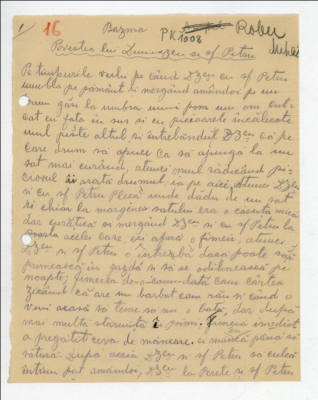 16 Basma Rober
PK 1008 Mihai
Povestea lui Dumnezeu si sf Petru
Pe timpurile vechi pe când Dzeu cu sf Petru
umbla pe pământ si mergând amândoi pe un
drum găsi la umbra unui pom un om cul-
cat cu fata in sus si cu picioarele incălecate
unul peste altul si intrebândul Dzeu că pe
care drum să apuce ca să ajungă la un
sat mai curând, atunci omul rădicând pi-
ciorul îi arată drumul ia pe aici, atunci Dzeu
si cu sf Petru plecă unde dădu de un sat
si chiar la marginea satului era o căsuta mică
dar curătică si mergând Dzeu si cu sf Petru la
acelei case esi afară o fimeie, atunci
Dzeu si sf Petru o intrebă daca poate să
primească in gazdă si să se odihnească pe
noapte; fimeia de-o-cam-dată cam cârtea
zicând că are un barbat cam rău si când o
veni acasă să teme să nu o bată, dar după
mai multă stăruintă îi primi. Fimeia imediat
a pregătit ceva de mâncare si mâncă până să
satură. Dupa aceia Dzeu si sf Petru să culcă
intrun pat amândoi, Dzeu la Perete si sf Petru